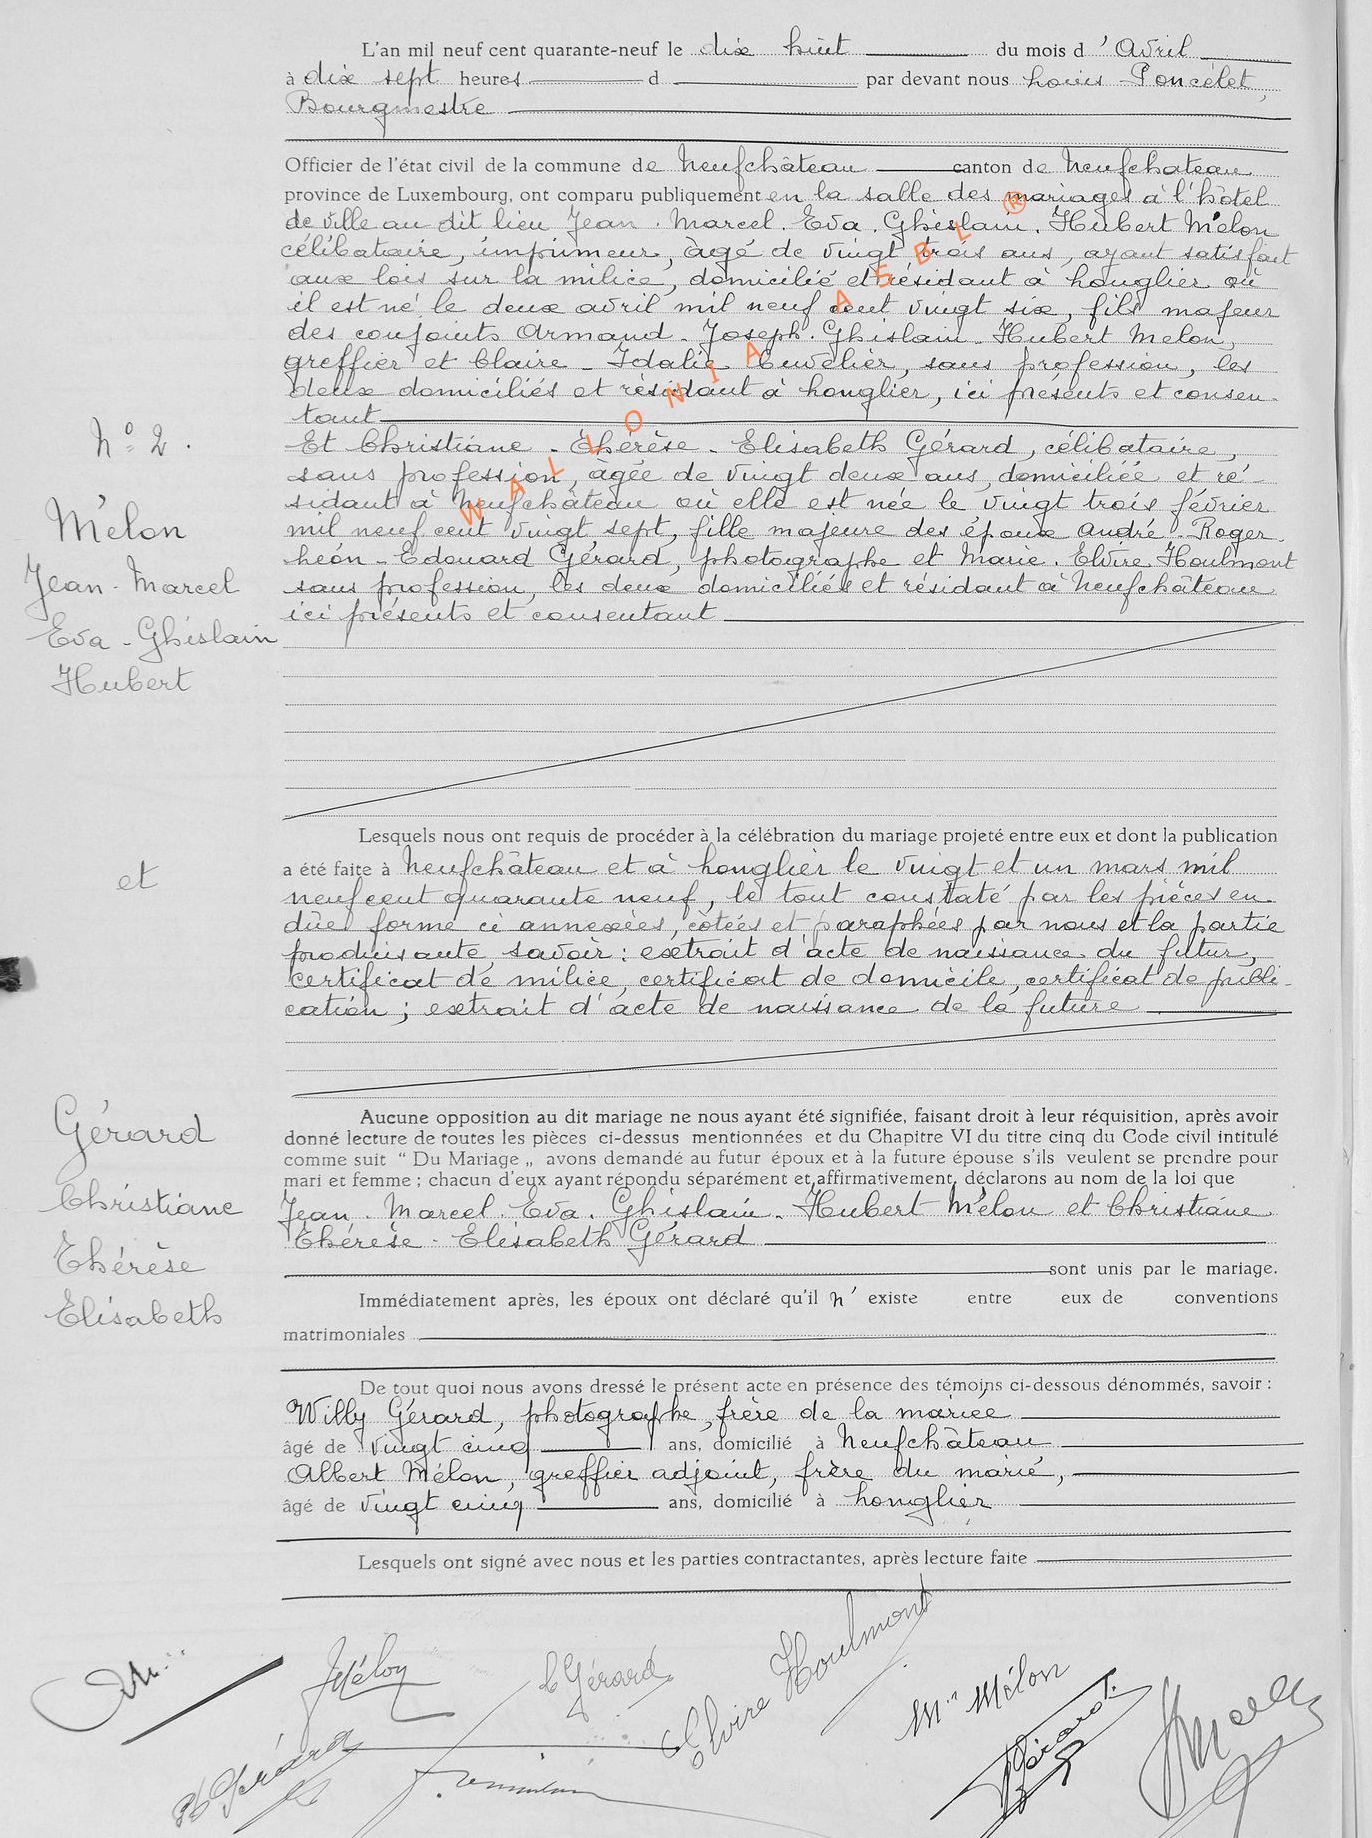 L'an mil neuf cent quarante-neuf le dix huit du mois d'Avril
à dix sept heures d par devant nous Louis Poncelet,
Bourgmestre
Officier de l'état civil de la commune de Neufchâteau canton de Neufchateau
province de Luxembourg, ont comparu publiquement en la salle des mariages à l'hôtel
de ville au dit lieu Jean. Marcel. Eva. Ghislain. Hubert Mélon
célibataire, imprimeur, âgé de vingt trois ans, ayant satisfait
aux lois sur la milice, domicilié et résidant à Longlier où
il est né le deux avril mil neuf cent vingt six, fils majeur
des conjoints Armand. Joseph. Ghislain. Hubert Melon,
greffier et Claire - Idalie Cuvelier, sans profession, les
deux domiciliés et résidant à Longlier, ici présents et consen-
tant
Et Christiane - Thérèse - Elisabeth Gérard, célibataire,
sans profession, âgée de vingt deux ans, domiciliée et ré-
sidant à Neufchâteau où elle est née le vingt trois février
mil neuf cent vingt sept, fille majeure des époux André - Roger.
Léon - Edouard Gérard, photographe et Marie. Elvire Houlmont
sans profession, les deux domiciliés et résidant à Neufchâteau
ici présents et consentant
N° 2.
Mélon
Jean - Marcel
Eva - Ghislain
Hubert
et
Gérard
Christiane
Thérèse
Elisabeth
WALLONIA ASBL ®
Lesquels nous ont requis de procéder à la célébration du mariage projeté entre eux et dont la publication
a été faite à Neufchâteau et à Longlier le vingt et un mars mil
neuf cent quarante neuf, le tout constaté par les pièces en
dûe forme ci annexées, côtées et paraphées par nous et la partie
produisante, savoir : extrait d'acte de naissance du futur,
certificat de milice, certificat de domicile, certificat de publi-
cation ; extrait d'acte de naissance de la future
Aucune opposition au dit mariage ne nous ayant été signifiée, faisant droit à leur réquisition, après avoir
donné lecture de toutes les pièces ci-dessus mentionnées et du Chapitre VI du titre cinq du Code civil intitulé
comme suit “ Du Mariage „ avons demandé au futur époux et à la future épouse s'ils veulent se prendre pour
mari et femme ; chacun d'eux ayant répondu séparément et affirmativement, déclarons au nom de la loi que
Jean. Marcel. Eva. Ghislain. Hubert Mélon et Christiane
Thérèse - Elisabeth Gérard
sont unis par le mariage.
Immédiatement après, les époux ont déclaré qu'il n'existe entre eux de conventions
matrimoniales
De tout quoi nous avons dressé le présent acte en présence des témoins ci-dessous dénommés, savoir :
Willy Gérard, photographe, frère de la mariée
âgé de vingt cinq ans, domicilié à Neufchâteau
Albert Mélon, greffier adjoint, frère du marié,
âgé de vingt cinq ans, domicilié à Longlier
Lesquels ont signé avec nous et les parties contractantes, après lecture faite
JMélon
C Gérard
Elvire Houlmont
Mélon
Gérard
Gérard